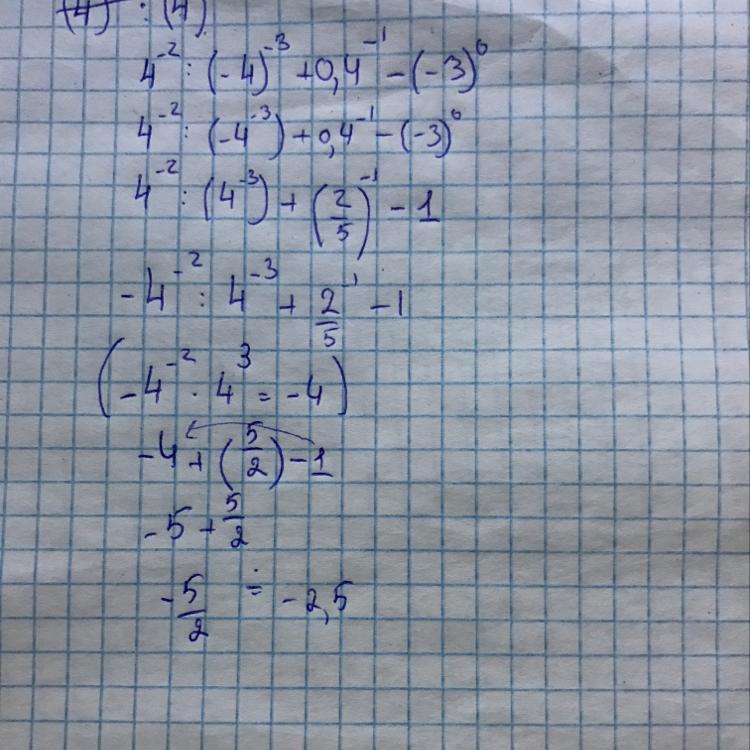 (4) : (4)
4⁻² : (-4)⁻³ + 0,4⁻¹ - (-3)⁰
4⁻² : (-4⁻³) + 0,4⁻¹ - (-3)⁰
4⁻² : (4⁻³) + (2/5)⁻¹ - 1
-4⁻² : 4⁻³ + 2/5⁻¹ - 1
(-4⁻² · 4³ = -4)
-4 + (5/2) - 1
-5 + 5/2
-5/2 = -2,5